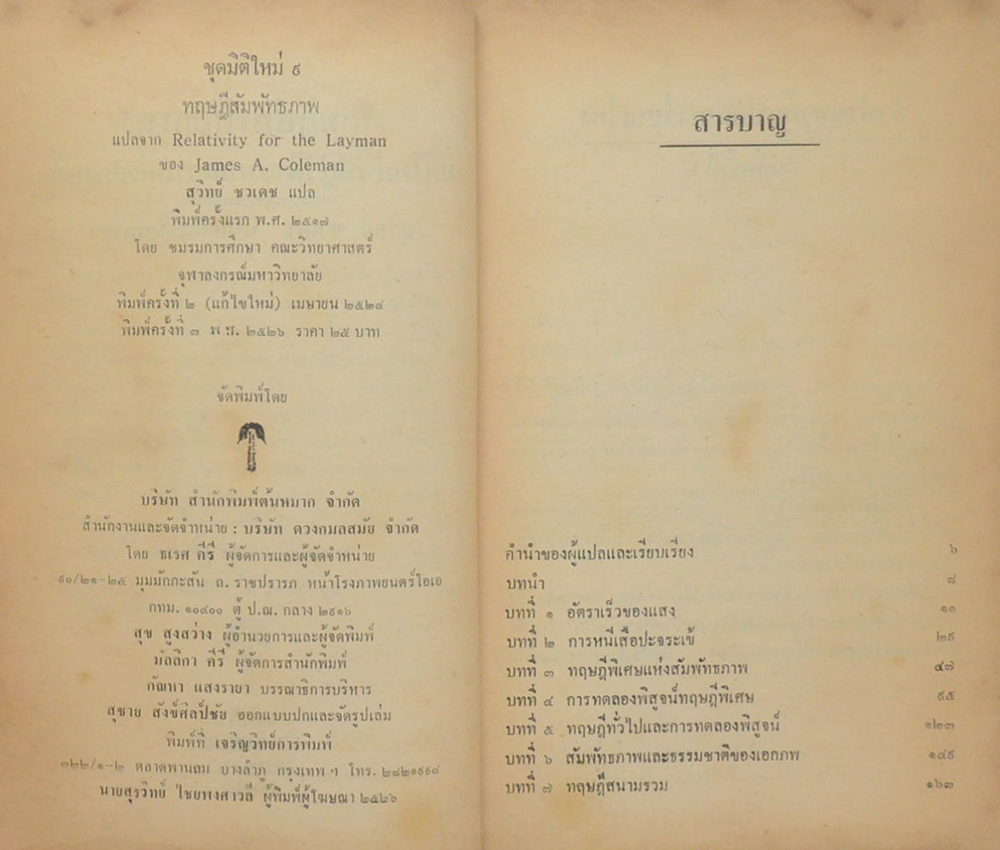 ชุดมิติใหม่ ๙
ทฤษฎีสัมพัทธภาพ
แปลจาก Relativity for the Layman
ของ James A. Coleman
สุวิทย์ ชวเดช แปล
พิมพ์ครั้งแรก พ.ศ. ๒๕๑๗
โดย ชมรมการศึกษา คณะวิทยาศาสตร์
จุฬาลงกรณ์มหาวิทยาลัย
พิมพ์ครั้งที่ ๒ (แก้ไขใหม่) เมษายน ๒๕๒๔
พิมพ์ครั้งที่ ๓ พ.ย. ๒๕๒๖ ราคา ๒๕ บาท
จัดพิมพ์โดย
บริษัท สำนักพิมพ์ต้นหมาก จำกัด
สำนักงานและจัดจำหน่าย : บริษัท ดวงกมลสมัย จำกัด
โดย ธเรศ คีรี ผู้จัดการและผู้จัดจำหน่าย
๙๐/๒๑-๒๕ มุมมักกะสัน ถ. ราชปรารภ หน้าโรงภาพยนตร์โอเอ
กทม. ๑๐๔๐๐ ตู้ ป.ณ. กลาง ๒๙๑๖
สุข สูงสว่าง ผู้อำนวยการและผู้จัดพิมพ์
มัลลิกา คีรี ผู้จัดการสำนักพิมพ์
กัณหา แสงรายา บรรณาธิการบริหาร
สุชาย สังข์ศิลป์ชัย ออกแบบปกและจัดรูปเล่ม
พิมพ์ที่ เจริญวิทย์การพิมพ์
๓๒๒/๑-๒ ตลาดพานถม บางลำภู กรุงเทพ ฯ โทร. ๒๘๒๑๙๙๘
นายสุรวิทย์ ไชยพงศาวลี ผู้พิมพ์ผู้โฆษณา ๒๕๒๖
สารบาญ
คำนำของผู้แปลและเรียบเรียง ๖
บทนำ ๘
บทที่ ๑ อัตราเร็วของแสง ๑๑
บทที่ ๒ การหนีเสือปะจระเข้ ๒๙
บทที่ ๓ ทฤษฎีพิเศษแห่งสัมพัทธภาพ ๔๗
บทที่ ๔ การทดลองพิสูจน์ทฤษฎีพิเศษ ๙๕
บทที่ ๕ ทฤษฎีทั่วไปและการทดลองพิสูจน์ ๑๒๓
บทที่ ๖ สัมพัทธภาพและธรรมชาติของเอกภพ ๑๔๙
บทที่ ๗ ทฤษฎีสนามรวม ๑๖๓